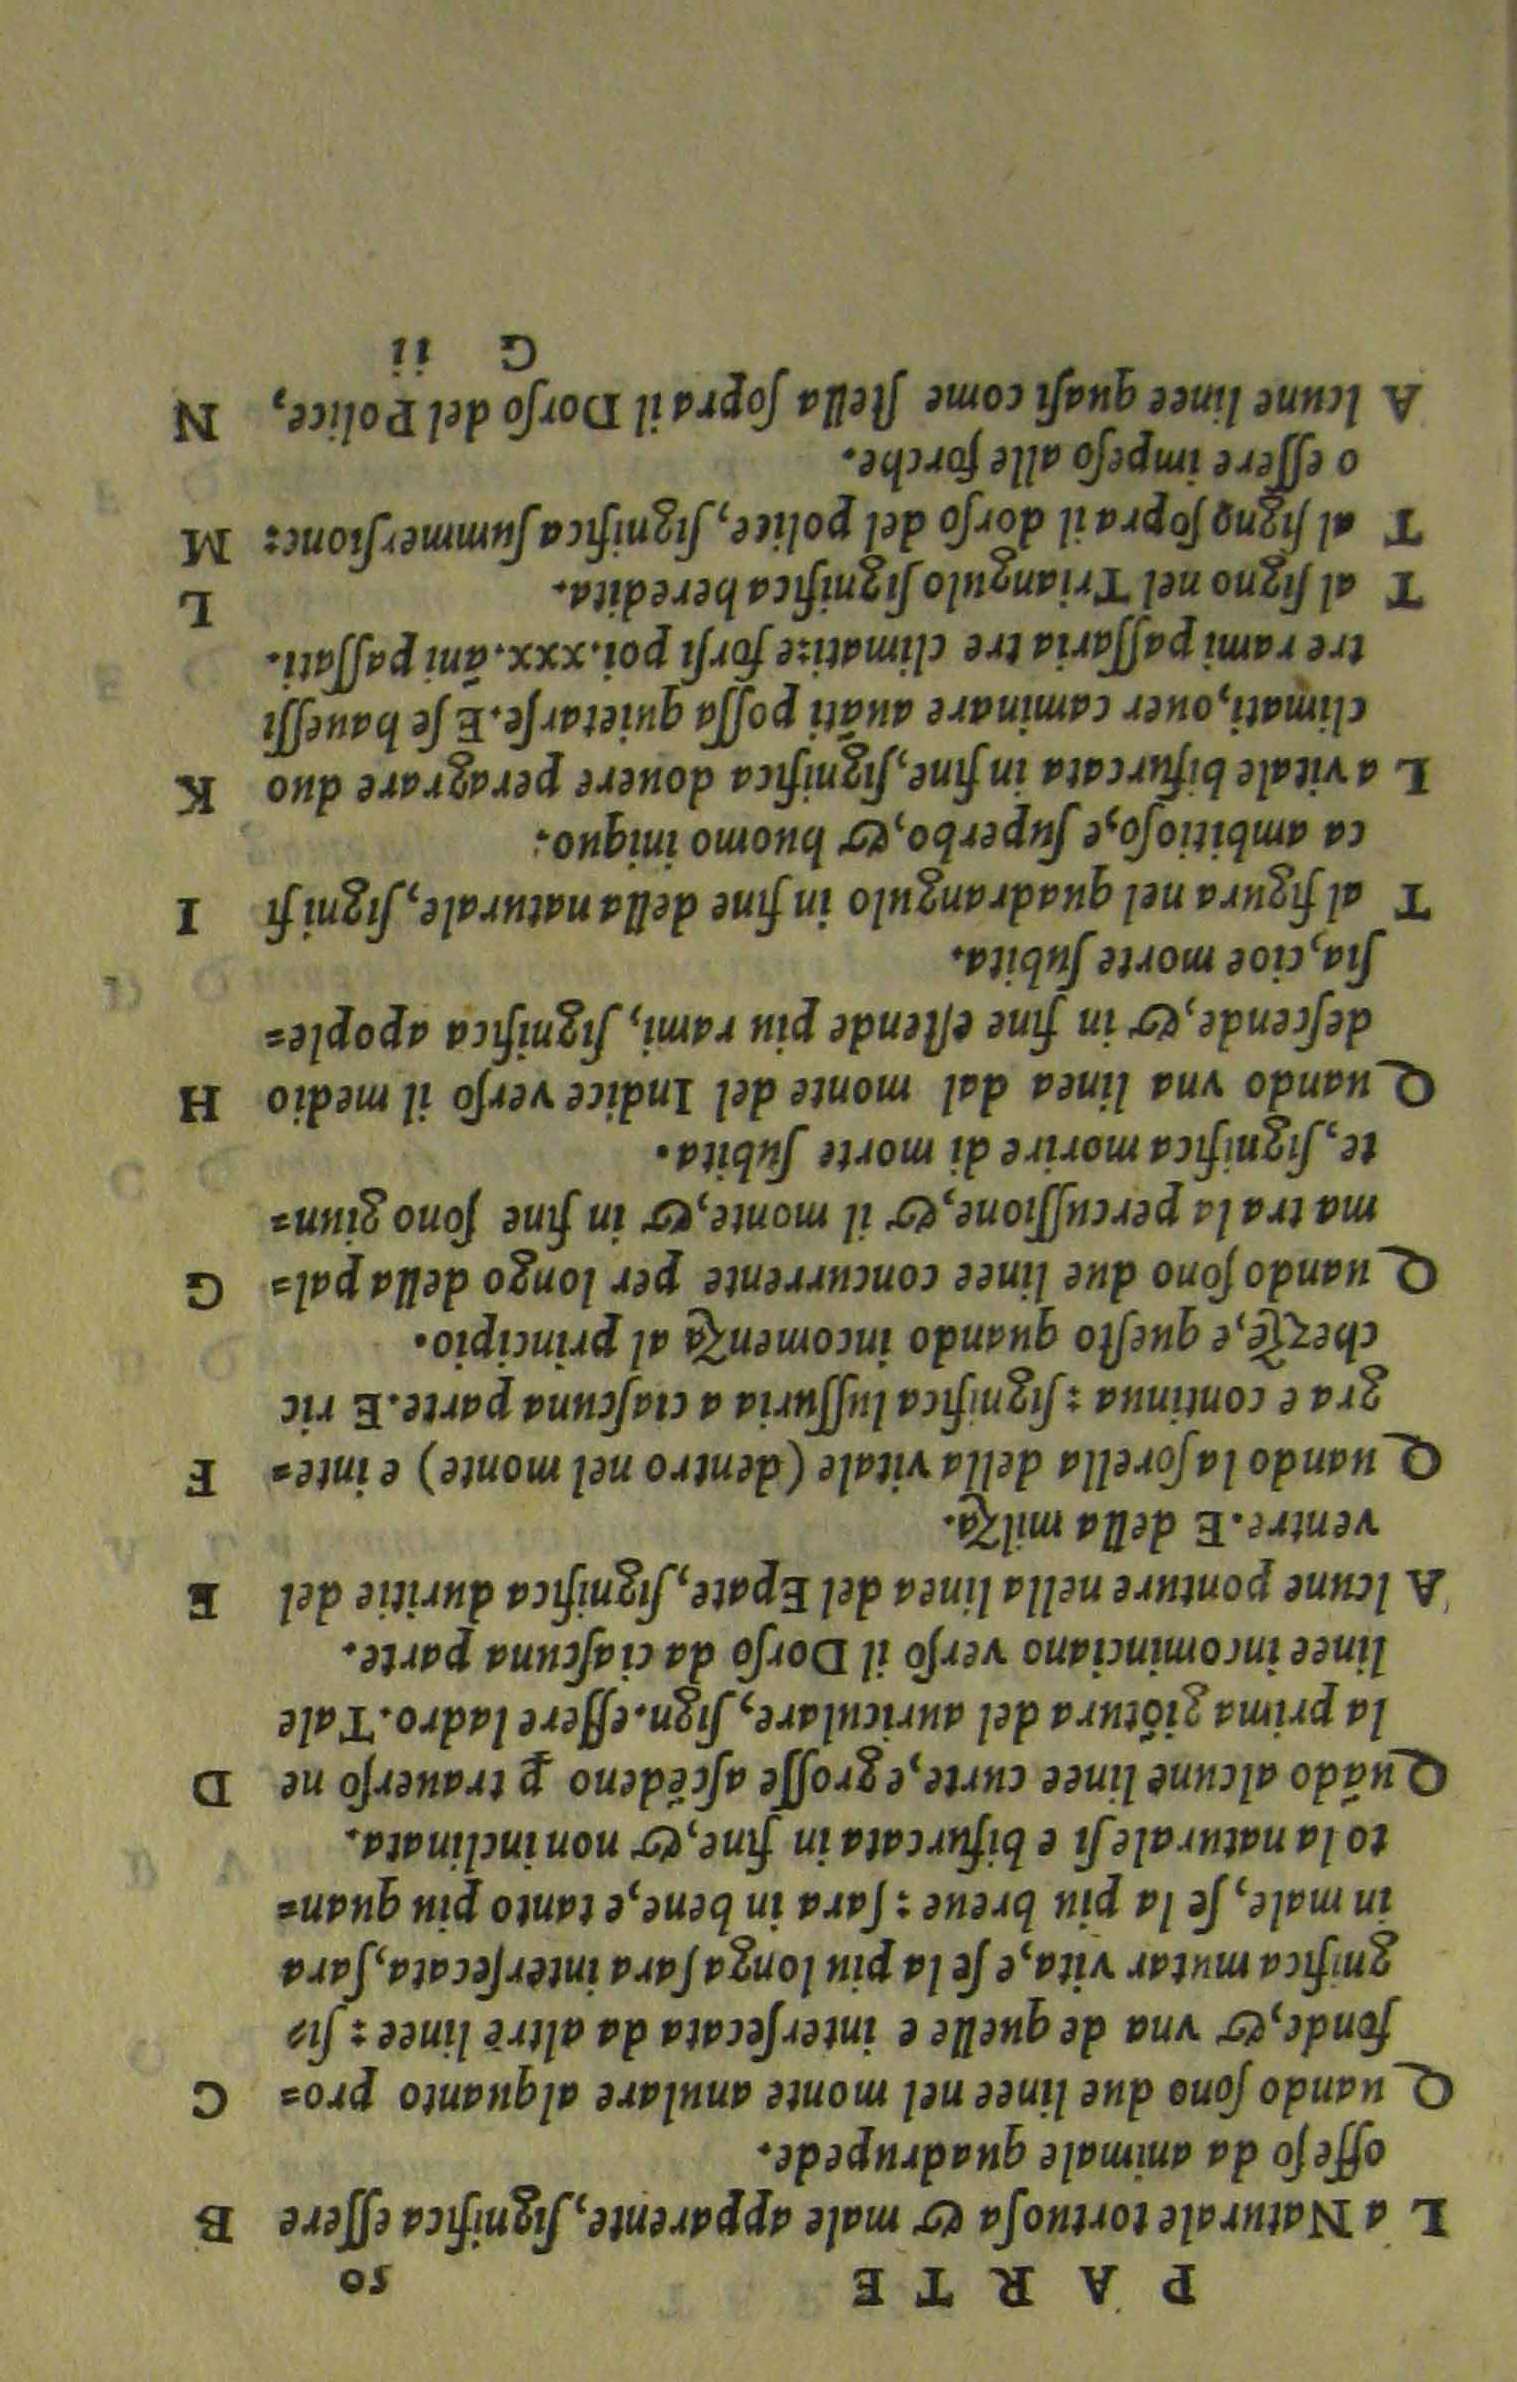 PARTE 50
La Naturale tortuosa & male apparente, significa essere B
offeso da animale quadrupede.
Quando sono due linee nel monte anulare alquanto pro= C
fonde, & vna de quelle e intersecata da altre linee: si=
gnifica mutar vita, e se la piu longa sara intersecata, sara
in male, se la piu breue: sara in bene, e tanto piu quan=
to la naturale si e bifurcata in fine, & non inclinata.
Quãdo alcune linee curte, e grosse ascẽdeno ꝑ trauerso ne D
la prima giõtura del auriculare, sign. essere ladro. Tale
linee incominciano verso il Dorso da ciascuna parte.
Alcune ponture nella linea del Epate, significa duritie del E
ventre. E della milza.
Quando la sorella della vitale (dentro nel monte) e inte= F
gra e continua: significa lussuria a ciascuna parte. E ric
chezze, e questo quando incomenza al principio.
Quando sono due linee concurrente per longo della pal= G
ma tra la percussione, & il monte, & in fine sono giun=
te, significa morire di morte subita.
Quando vna linea dal monte del Indice verso il medio H
descende, & in fine estende piu rami, significa apople=
sia, cioe morte subita.
Tal figura nel quadrangulo in fine della naturale, signifi I
ca ambitioso, e superbo, & huomo iniquo.
La vitale bifurcata in fine, significa douere peragrare duo K
climati, ouer caminare auãti possa quietarse. E se hauessi
tre rami passaria tre climati: e forsi poi .xxx. ãni passati.
Tal signo nel Triangulo significa heredita. L
Tal signo sopra il dorso del police, significa summersione: M
o essere impeso alle forche.
Alcune linee quasi come stella sopra il Dorso del Police, N
G ii